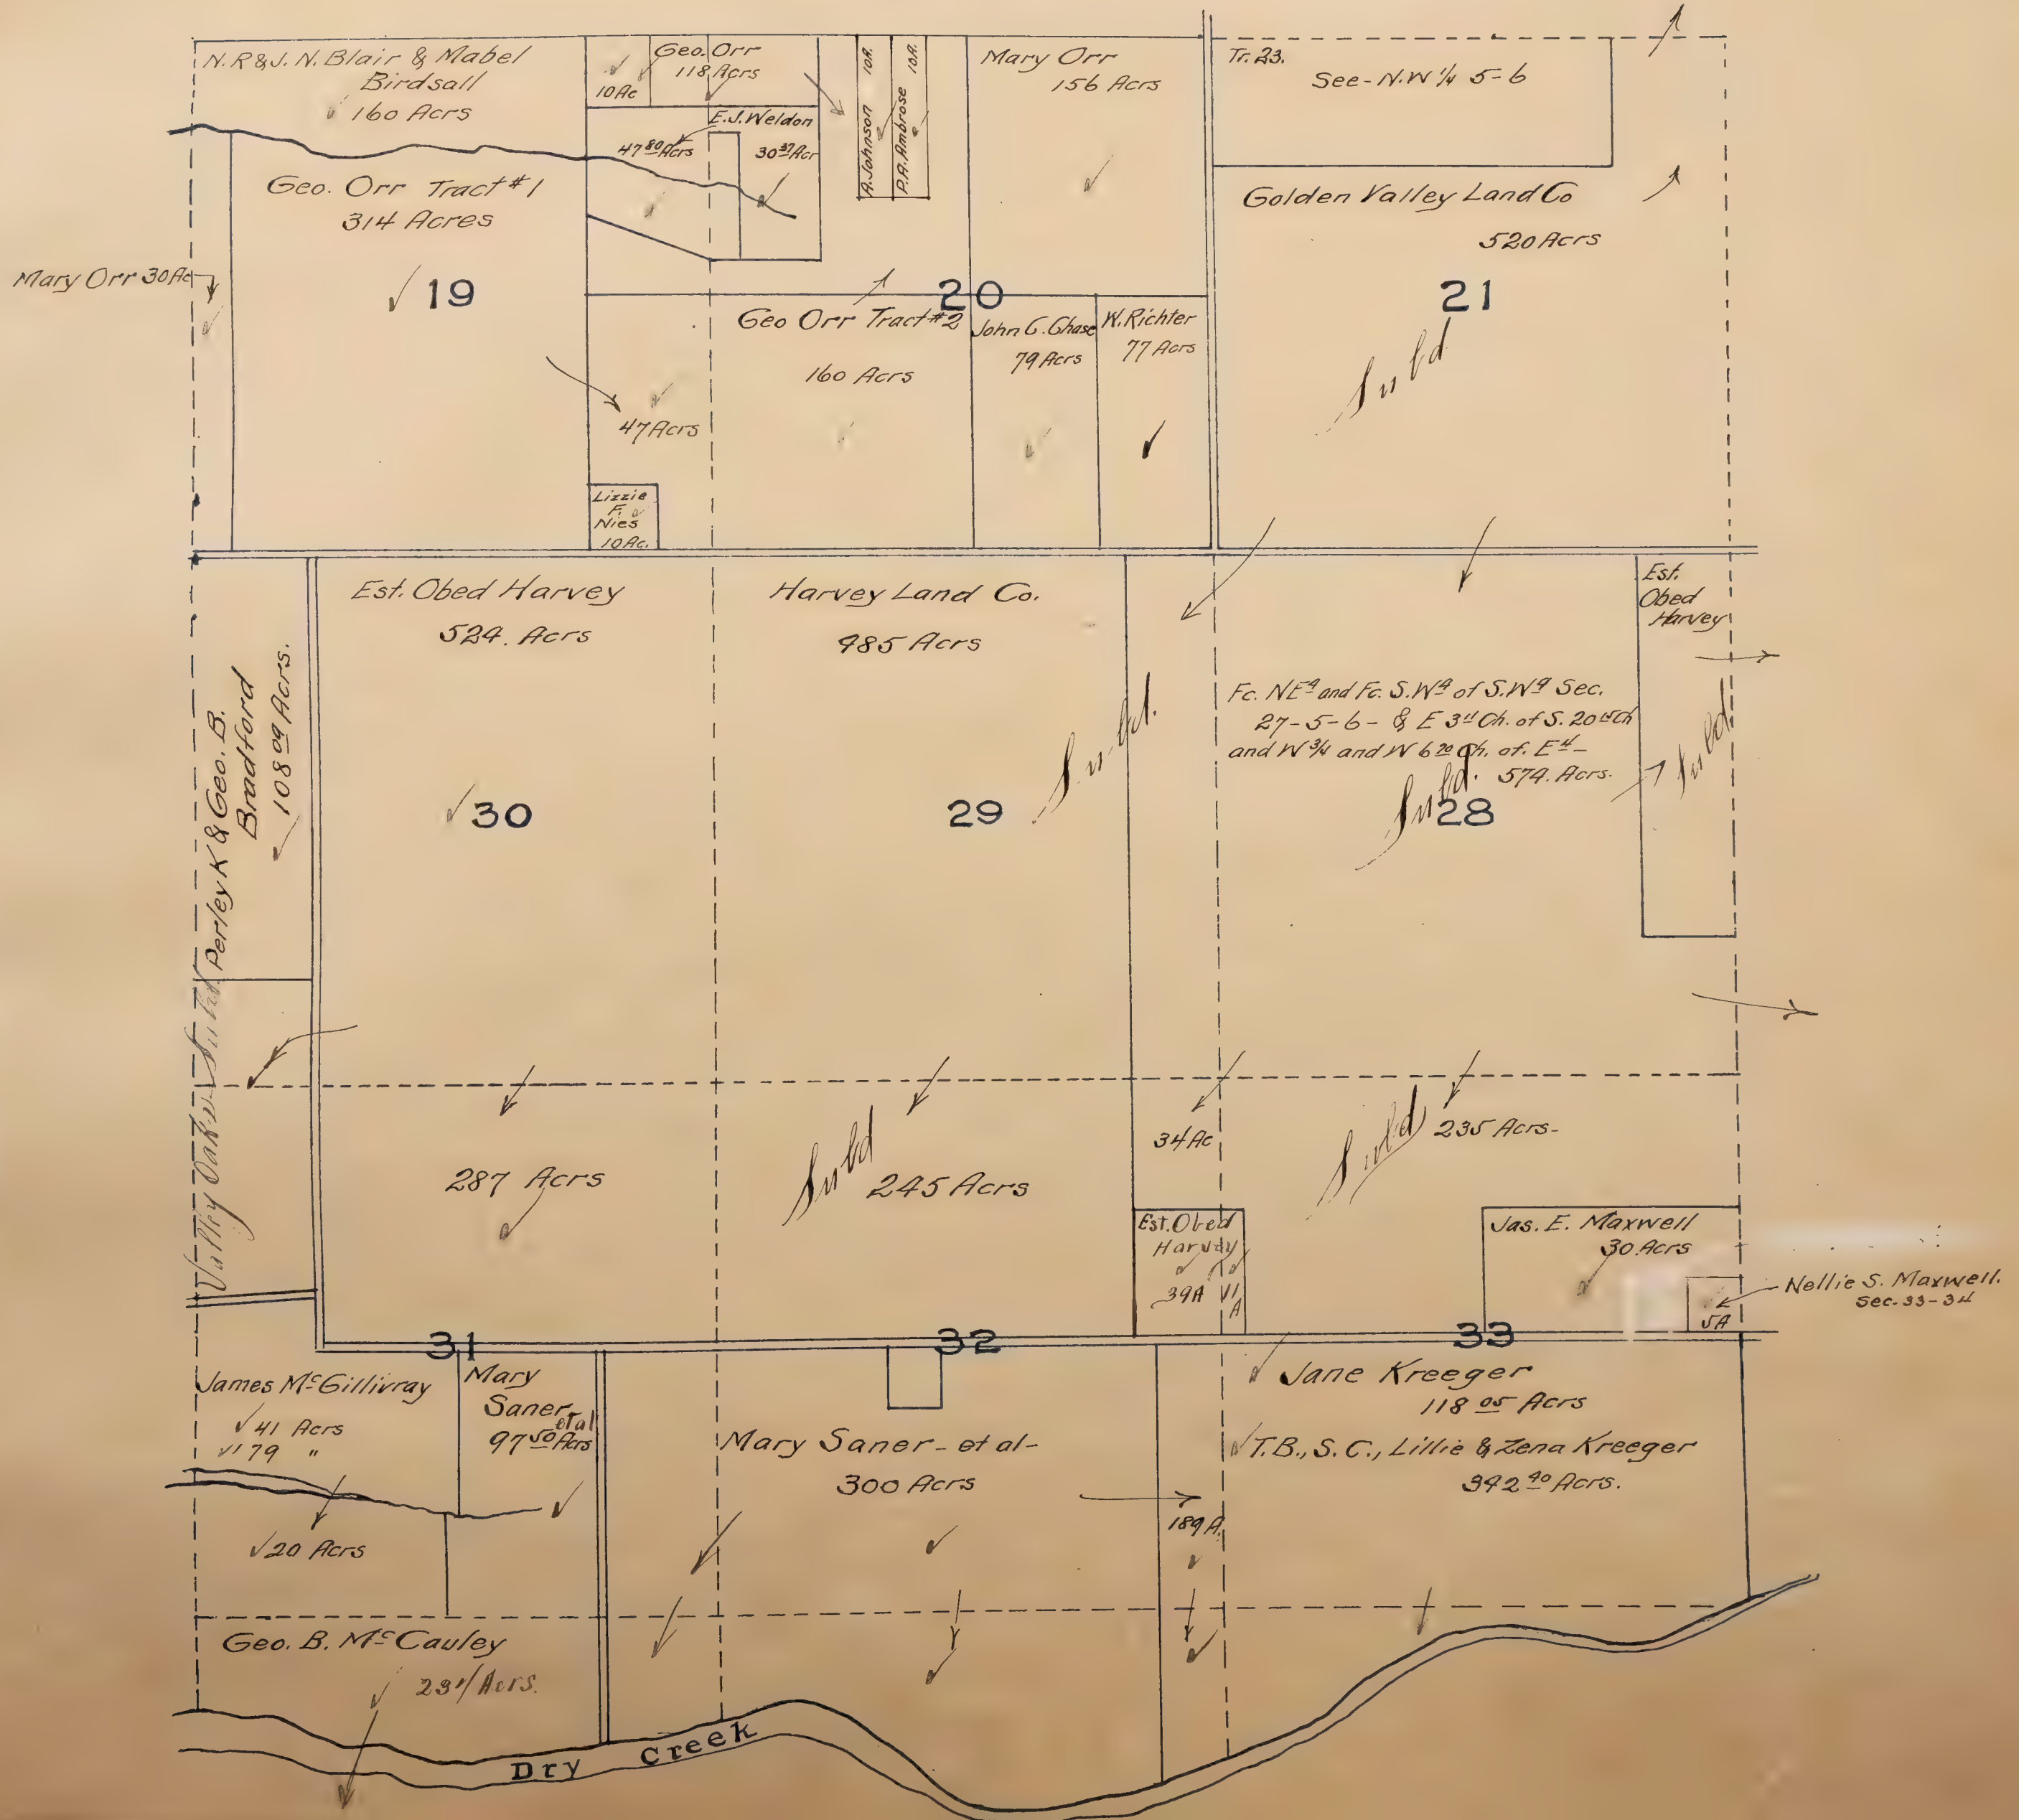 N.R & J.N. Blair & Mabel
Birdsall
160 Acrs
10 Ac
Geo. Orr
118 Acrs
E.J. Weldon
47 80 Acrs
30 37 Acr
A. Johnson 10A.
P.A. Ambrose 10A.
Mary Orr
156 Acrs
Tr. 23.
See - N.W 1/4 5-6
Geo. Orr Tract #1
314 Acres
Mary Orr 30 Ac
19
20
Golden Valley Land Co
520 Acrs
21
Subd
Geo Orr Tract #2
160 Acrs
John C. Chase
79 Acrs
W. Richter
77 Acrs
47 Acrs
Lizzie
F.
Nies
10 Ac.
Est. Obed Harvey
524. Acrs
Harvey Land Co.
485 Acrs
Est.
Obed
Harvey
Subd.
Perley K & Geo. B.
Bradford
108 09 Acrs.
Fc. NE 4 and Fc. S.W 4 of S.W 4 Sec.
27-5-6- & E 3 Ch. of S. 20 Ch
and W 3/4 and W 6 20 Ch. of. E 4 -
574. Acrs.
Subd.
Subd.
30
29
28
Valley Oaks Subd.
287 Acrs
Subd
245 Acrs
34 Ac
Subd
235 Acrs-
Est. Obed
Harvey
39A
1
A
Jas. E. Maxwell
30 Acrs
Nellie S. Maxwell.
Sec-33-34
5A
31
32
33
James McGillivray
41 Acrs
179 "
20 Acrs
Mary
Saner
et al
97 50 Acrs
Mary Saner - et al -
300 Acrs
189 A.
Jane Kreeger
118 05 Acrs
T.B., S.C., Lillie & Zena Kreeger
342 40 Acrs.
Geo. B. McCauley
231 Acrs.
Dry Creek